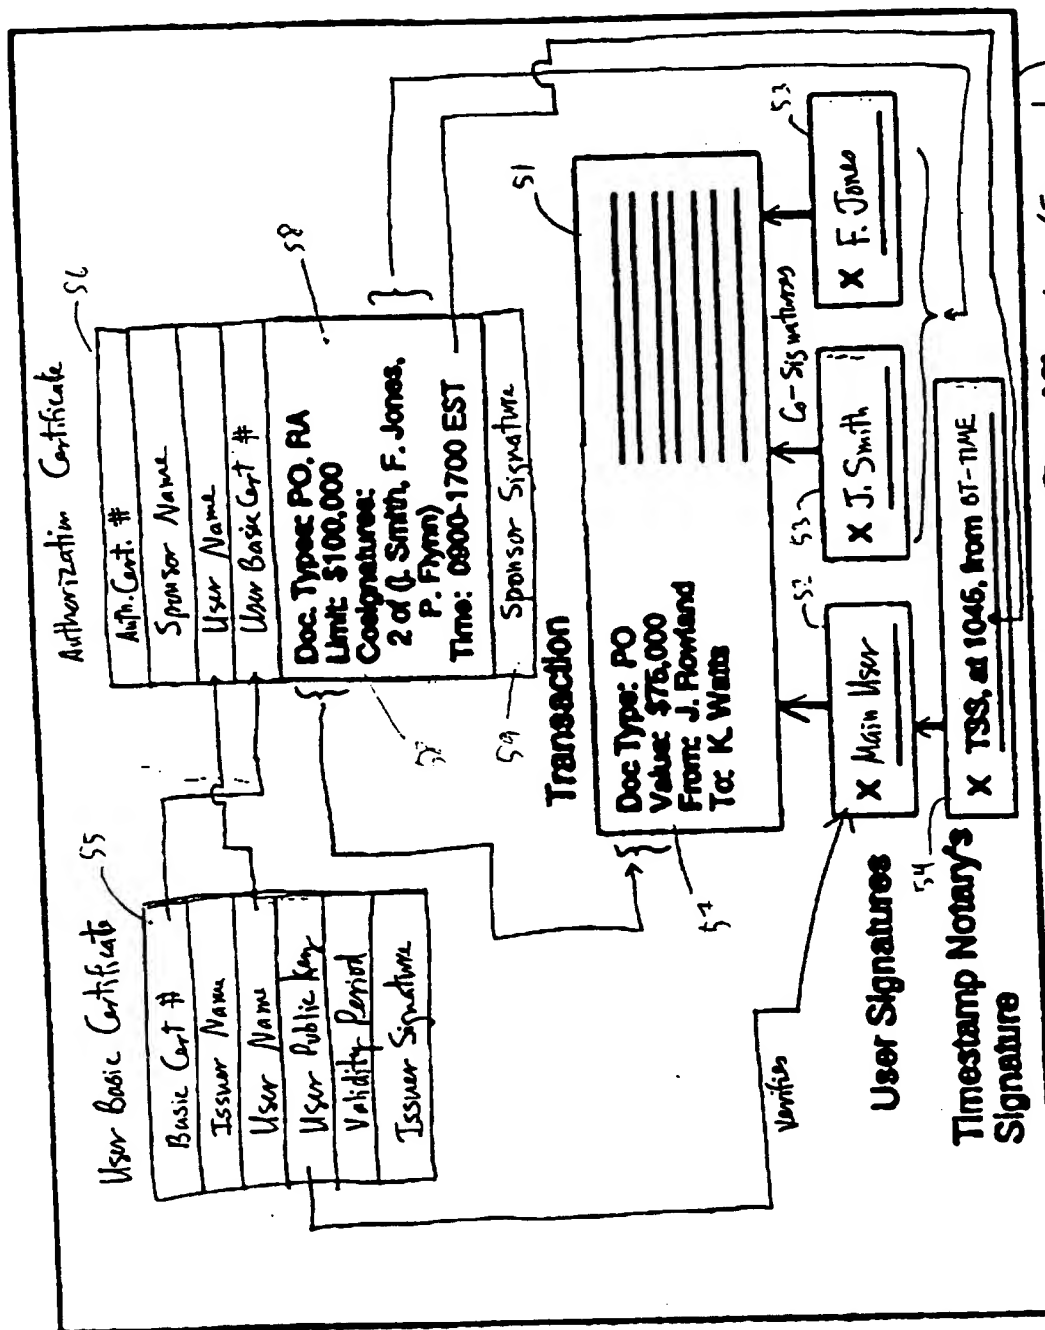 User Basic Certificate
55
Basic Cert #
Issuer Name
User Name
User Public Key
Validity Period
Issuer Signature
Authorization Certificate
56
Auth. Cert. #
Sponsor Name
User Name
User Basic Cert #
Doc. Types: PO, RA
Limit: $100,000
Cosignatures:
2 of (J. Smith, F. Jones,
P. Flynn)
Time: 0900-1700 EST
58
Sponsor Signature
59
Transaction
51
Doc Type: PO
Value: $75,000
From: J. Rowland
To: K. Watts
57
Verifies
Co-Signatures
User Signatures
52
X Main User
53
X J. Smith
53
X F. Jones
Timestamp Notary's
Signature
54
X TSS, at 1045, from BT-TIME